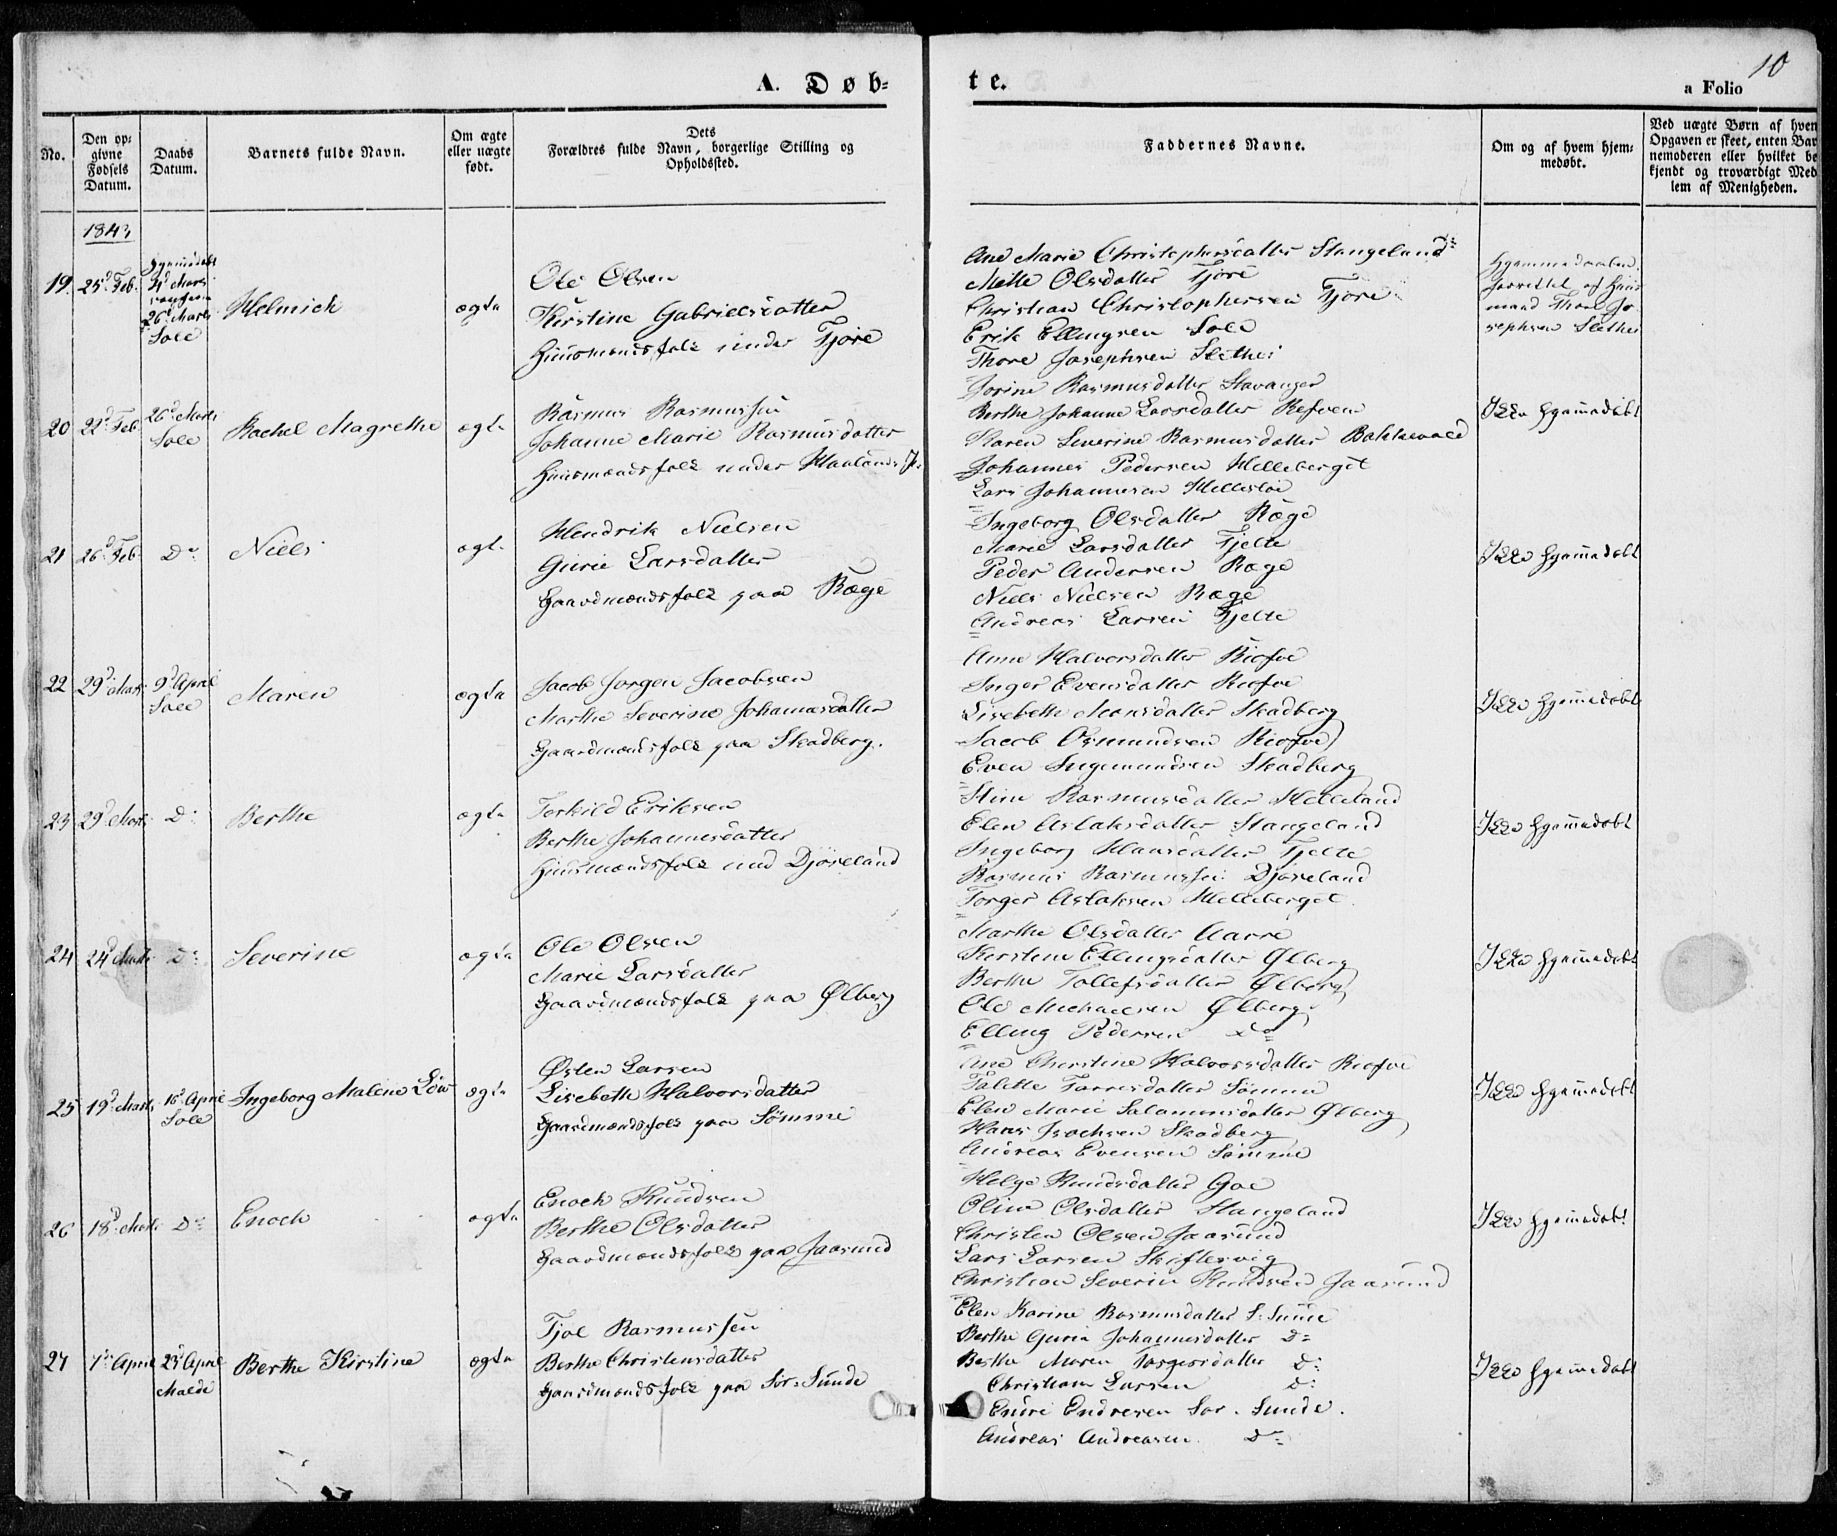 10
A. Døb-
te.
a Folio
No.
Den op-
givne
Fødsels
Datum.
Daabs
Datum.
Barnets fulde Navn.
Om ægte
eller uægte
født.
Dets
Forældres fulde Navn, borgerlige Stilling og
Opholdssted.
Faddernes Navne.
Om og af hvem hjem-
medøbt.
Ved uægte Børn af hvem
Opgaven er skeet, enten Bar
nemoderen eller hvilket be
kjendt og troværdigt Med
lem af Menigheden.
1843
19.
25d Feb.
Hjemmedøbt
26d Marts
Sole
Helmich
ægte
Ole Olsen
Kirstine Gabrielsdatter
Huusmandsfolk under Tjore
Ane Marie Christophersdatter Stangeland
Mette Olsdatter Tjore
Christian Christophersen Tjore
Erik Ellingsen Sole
Thore Josephsen Slethei
Hjemmedaaben
forrettet af Huus
mand Thore Jo-
sephsen Slethei
20
22d Feb
26d Marts
Sole
Rachel Magrethe
ægte
Rasmus Rasmussen
Johanne Marie Rasmusdatter
Huusmandsfolk under Haaland
Jorine Rasmusdatter Stavanger
Berthe Johanne Larsdatter Refven
Karen Severine Rasmusdatter Bakkevold
Johannes Pedersen Helleberget
Lars Johannesen Hellestøe
Ikke hjemmedøbt
21
26d Feb
Do
Niels
ægte
Hendrik Nielsen
Gurie Larsdatter
Gaardmandsfolk paa Ræge
Ingeborg Olsdatter Ræge
Marie Larsdatter Tjelte
Peder Andersen Ræge
Niels Nielsen Ræge
Andreas Larsen Tjelte
Ikke hjemmedøbt
22
29d Marts
9d April
Sole
Maren
ægte
Jacob Jorgen Jacobsen
Marthe Severine Johannesdatter
Gaardmandsfolk paa Skadberg.
Anne Halvorsdatter Risfve
Inger Evensdatter Risfve
Lisebeth Monsdatter Skadberg
Jacob Osmundsen Risfve
Even Ingemundsen Skadberg
Ikke hjemmedøbt
23
29d Marts
Do
Berthe
ægte
Torkild Eriksen
Berthe Johannesdatter
Huusmandsfolk und Djøseland
Stine Rasmusdatter Helleland
Elen Aslaksdatter Stangeland
Ingeborg Hansdatter Tjelte
Rasmus Rasmussen Djøseland
Torger Aslaksen Helleberget.
Ikke hjemmedøbt
24
24d Marts
Do
Severine
ægte
Ole Olsen
Marie Larsdatter
Gaardmandsfolk paa Ølberg
Marthe Olsdatter Aarre
Kirstine Ellingsdatter Ølberg
Berthe Tollefsdatter Ølberg
Ole Michaelsen Ølberg
Elling Pedersen Do
Ikke hjemmedøbt
25
19d Marts
16d April
Sole
Ingeborg Malene
ægte
Østen Larsen
Lisebeth Halvorsdatter
Gaardmandsfolk paa Sømme
Ane Christine Halvorsdatter Risfve
Talette Torresdatter Sømme
Elen Marie Salamonsdatter Ølberg
Hans Isachsen Skadberg
Andreas Evensen Sømme
Ikke hjemmedøbt
26
18d Marts
Do
Enoch
ægte
Enoch Knudsen
Berthe Olsdatter
Gaardmandsfolk paa Jaasund
Helge Knudsdatter Goe
Oline Olsdatter Stangeland
Christen Olsen Jaasund
Lars Larsen Skiftesvig
Christian Severin Knudsen Jaasund
Ikke hjemmedøbt
27
1ste April
23d April
Malde
Berthe Kirstine
ægte
Tjøl Rasmussen
Berthe Christensdatter
Gaardmandsfolk paa Sør-Sunde
Elen Karine Rasmusdatter S: Sunde
Berthe Guria Johannesdatter Do
Berthe Maren Torgersdatter Do
Christian Larsen Do
Endre Endresen Sør-Sunde.
Andreas Andreasen Do
Ikke hjemmedøbt